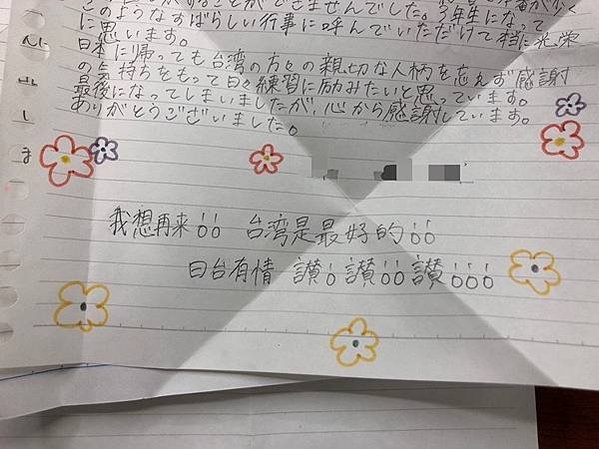 このようなすばらしい行事に呼んでいただけて本当に光栄
に思います。
日本に帰っても台湾の方々の親切な人柄を忘れず感謝
の気持ちをもって日々練習に励みたいと思っています。
最後になってしまいましたが、心から感謝しています。
ありがとうございました。
我想再来!! 台湾是最好的!!
日台有情 讃! 讃!! 讃!!!